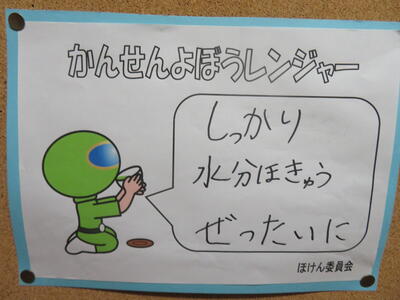 かんせんよぼうレンジャー
しっかり
水分ほきゅう
ぜったいに
ほけん委員会